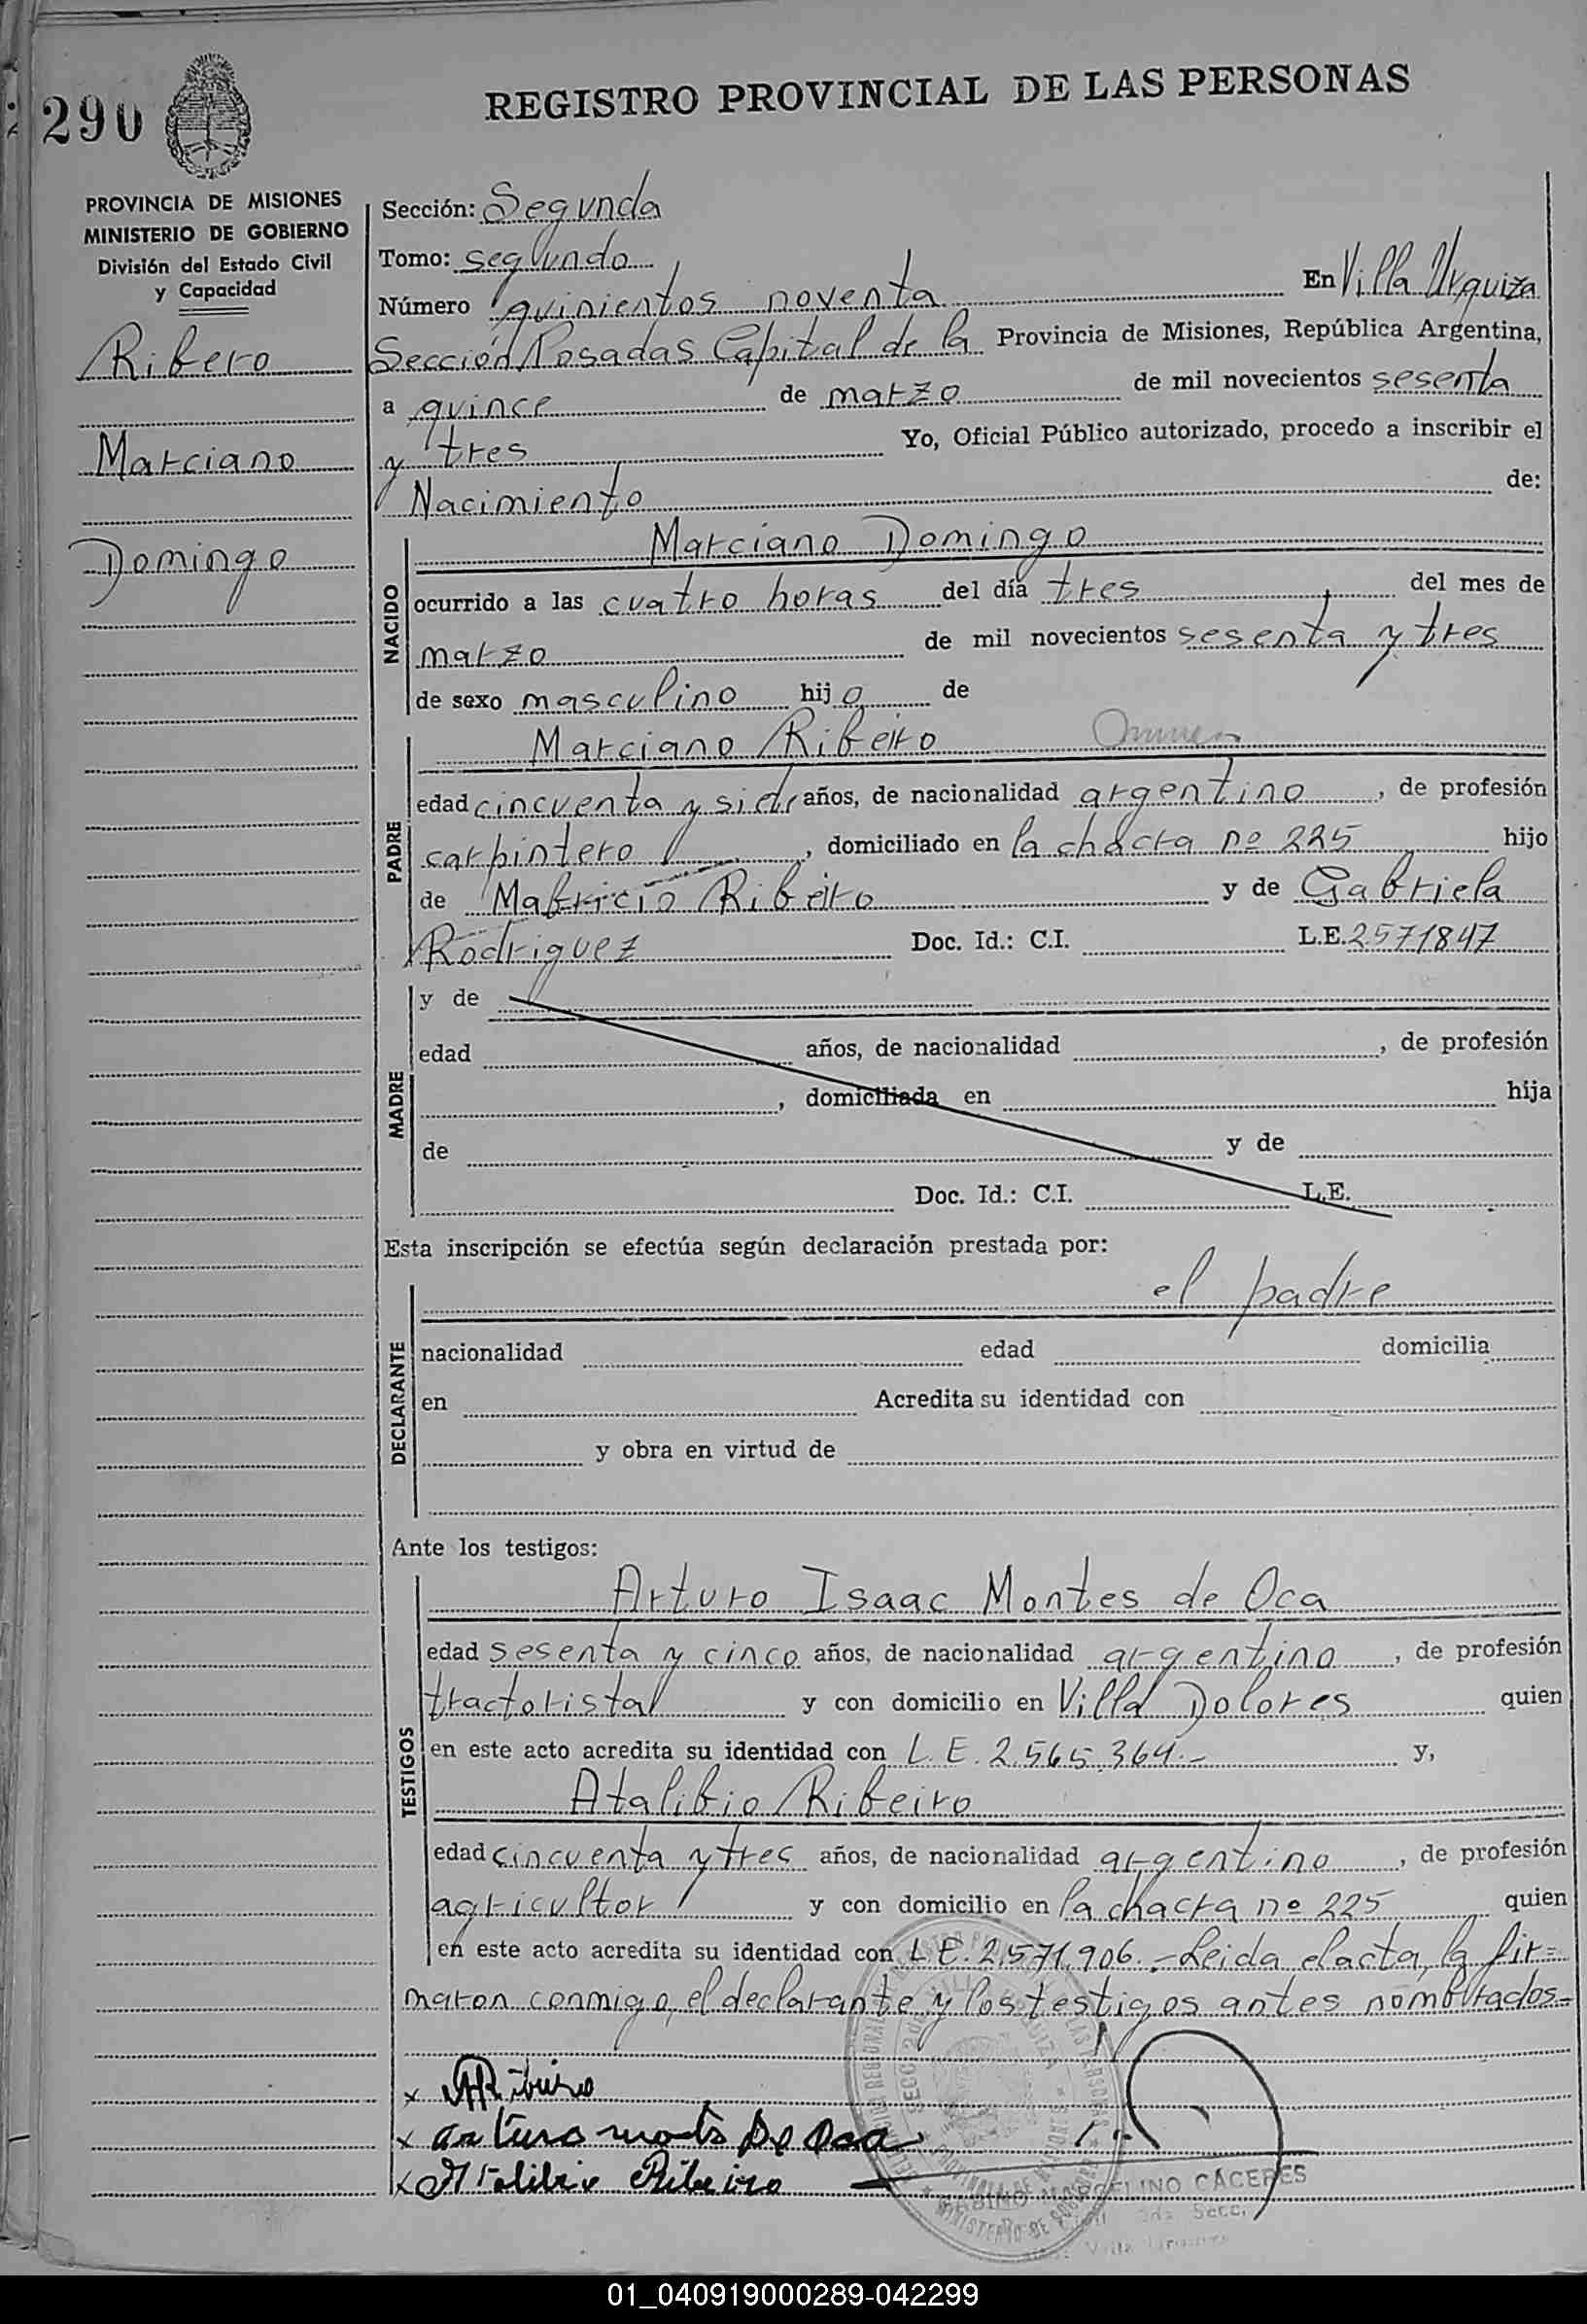 290
REGISTRO PROVINCIAL DE LAS PERSONAS
PROVINCIA DE MISIONES
MINISTERIO DE GOBIERNO
División del Estado Civil
y Capacidad
Ribero
Marciano
Domingo
Sección: Segunda
Tomo: segundo
Número quinientos noventa En Villa Urquiza
Sección Posadas Capital de la Provincia de Misiones, República Argentina,
a quince de marzo de mil novecientos sesenta
y tres Yo, Oficial Público autorizado, procedo a inscribir el
Nacimiento de:
NACIDO
Marciano Domingo
ocurrido a las cuatro horas del día tres del mes de
marzo de mil novecientos sesenta y tres
de sexo masculino hijo de
PADRE
Marciano Ribeiro
edad cincuenta y siete años, de nacionalidad argentino, de profesión
carpintero, domiciliado en la chacra nº 225 hijo
de Ribeiro y de Gabriela
Rodriguez Doc. Id.: C.I. L.E. 2571847
MADRE
y de
edad años, de nacionalidad , de profesión
, domiciliada en hija
de y de
Doc. Id.: C.I. L.E.
Esta inscripción se efectúa según declaración prestada por:
DECLARANTE
el padre
nacionalidad edad domicilia
en Acredita su identidad con
y obra en virtud de
Ante los testigos:
TESTIGOS
Arturo Isaac Montes de Oca
edad sesenta y cinco años, de nacionalidad argentino, de profesión
tractorista y con domicilio en Villa Dolores quien
en este acto acredita su identidad con L.E. 2.565.364.- y,
Atalibio Ribeiro
edad cincuenta y tres años, de nacionalidad argentino, de profesión
agricultor y con domicilio en la chacra nº 225 quien
en este acto acredita su identidad con L.E. 2.571.906.- Leida el acta, la fir=
maron conmigo, el declarante y los testigos antes nombrados.-
x MRibeiro
x arturo montes De Oca
x Atalibio Ribeiro
SABINO MARCELINO CACERES
01_040919000289-042299